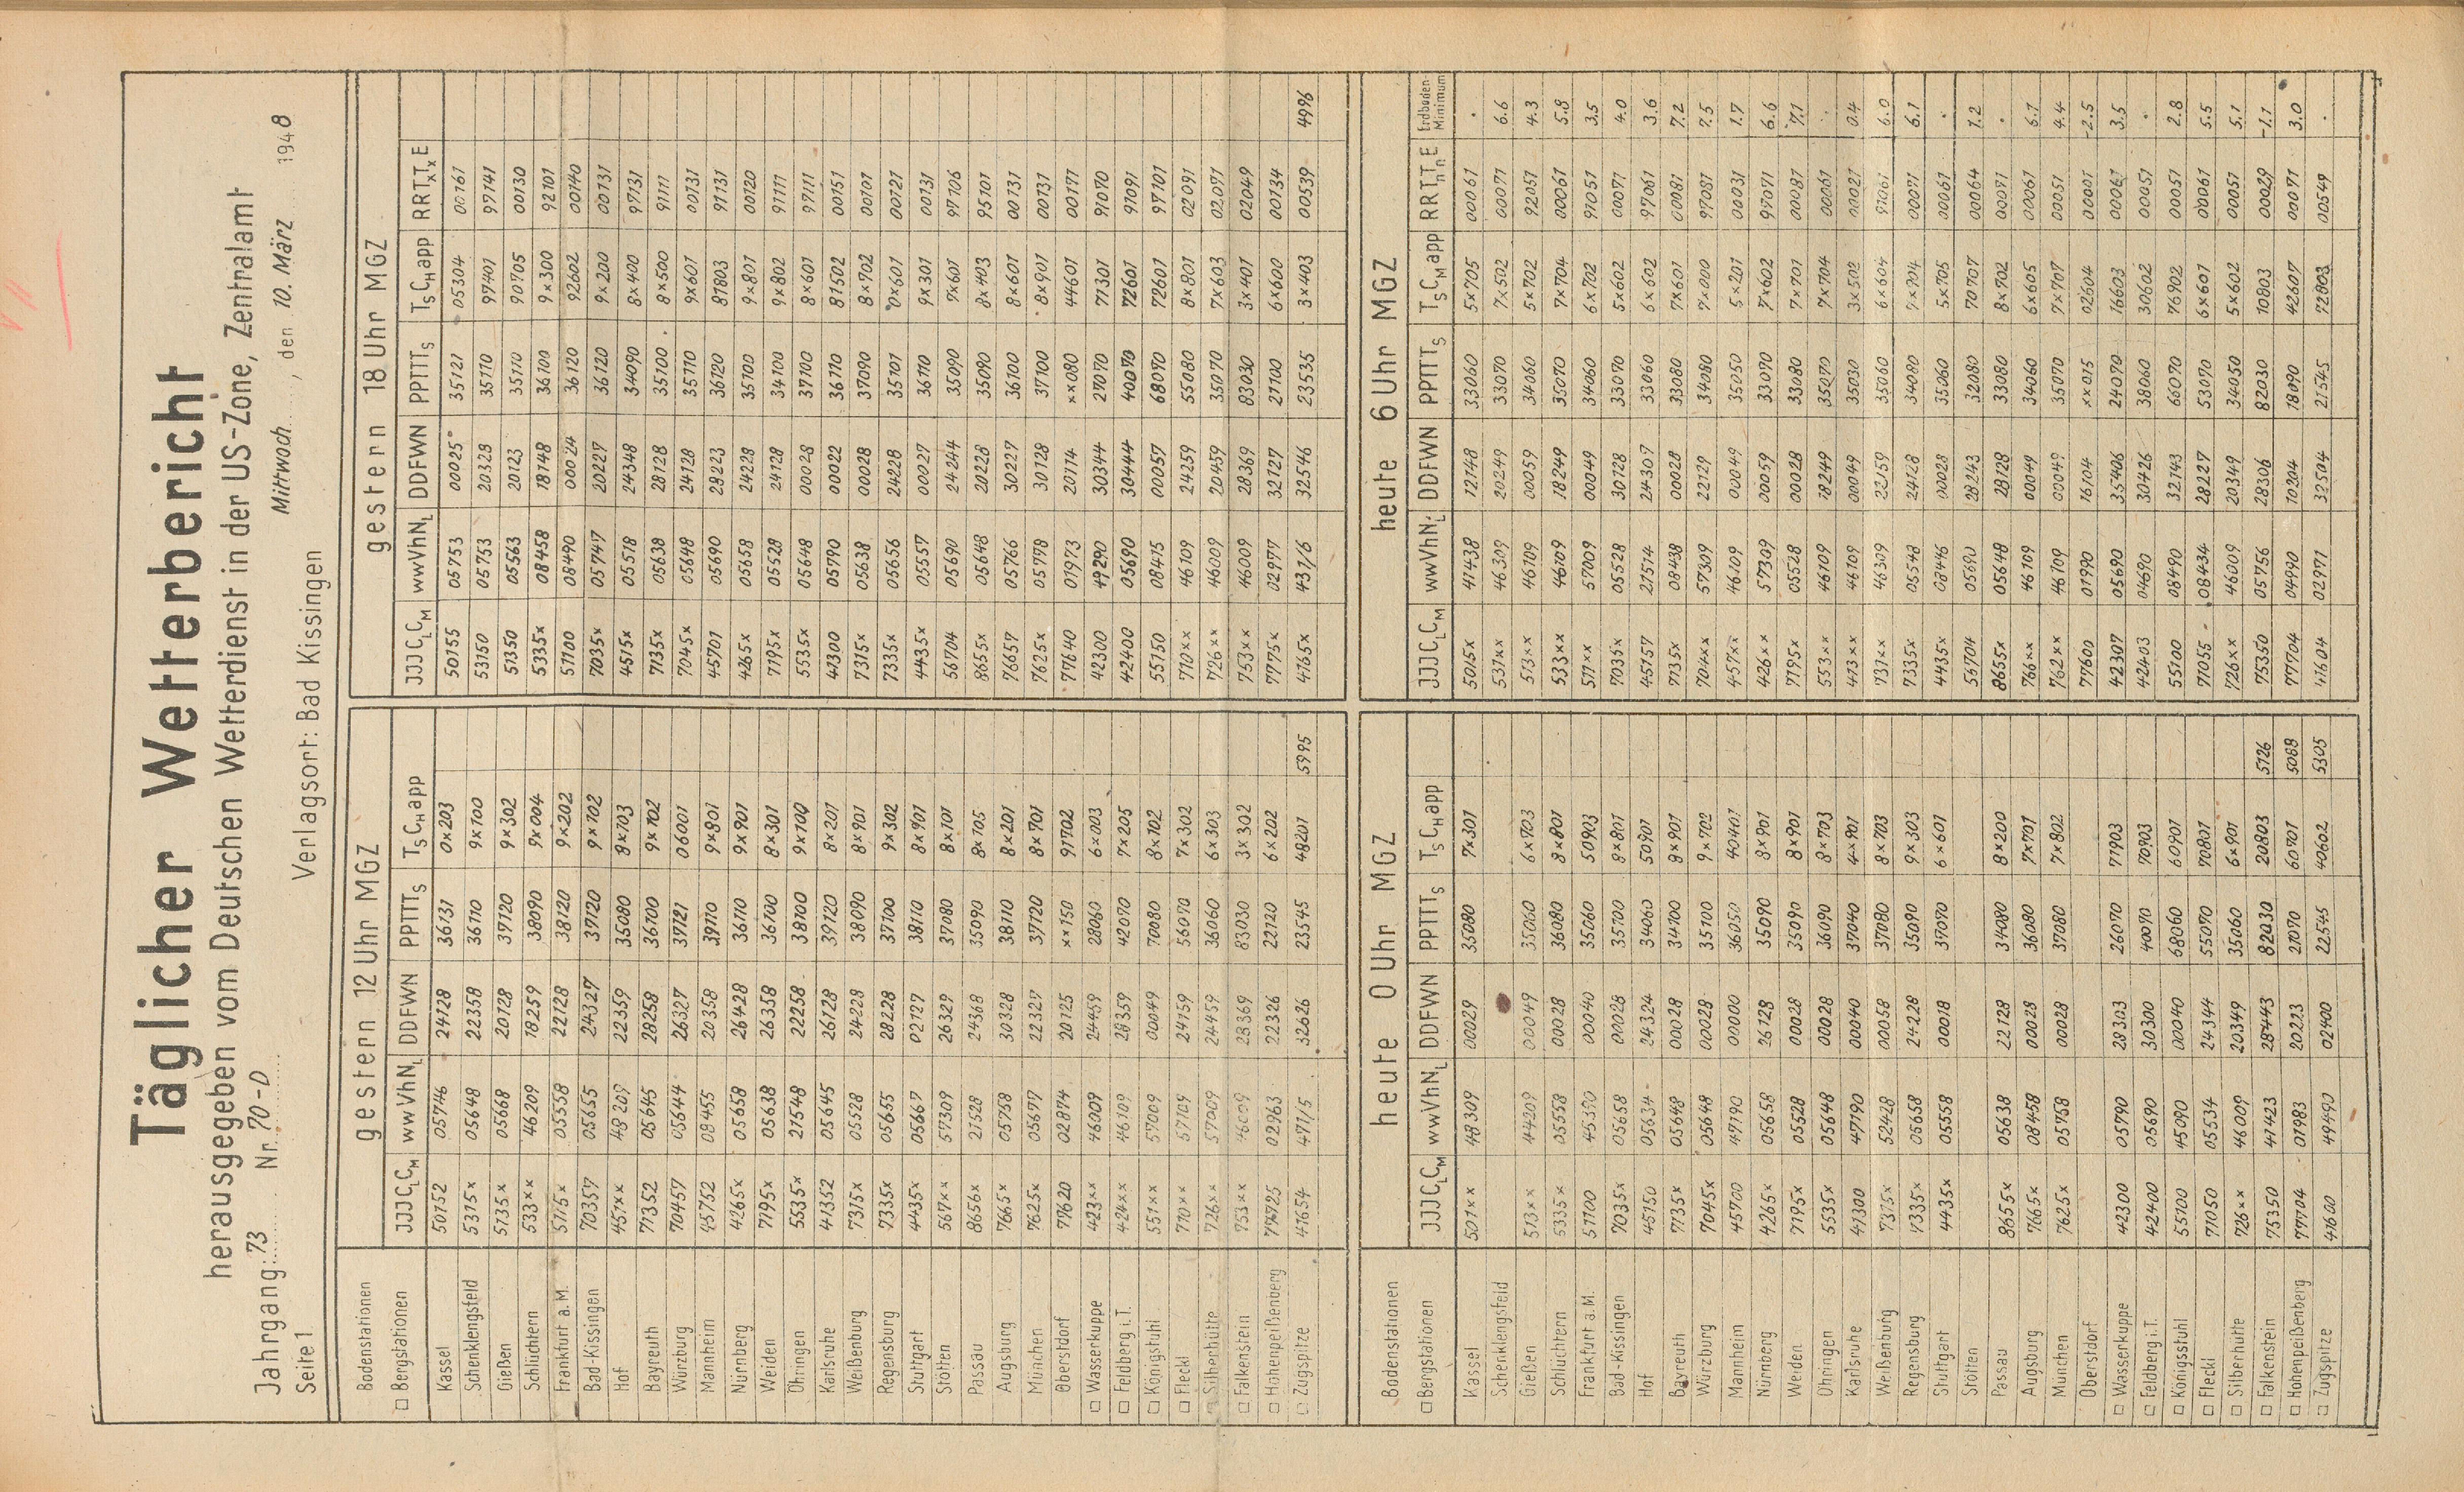 Täglicher Wetterbericht
herausgegeben vom Deutschen Wetterdienst in der US-Zone, Zentralamt
Jahrgang: 73 Nr. 70-D Mittwoch, den 10. März 1948
Seite 1 Verlagsort: Bad Kissingen
Bodenstationen gestern 12 Uhr MGZ gestern 18 Uhr MGZ
□ Bergstationen JJJCLCM wwVhNL DDFWN PPTTTs TsCHapp JJJCLCM wwVhNL DDFWN PPTTTs TsCHapp RRTxTxE
Kassel 50152 05746 24128 36131 0×203 50155 05753 00025 35121 05304 00161
Schenklengsfeld 5315× 05648 22358 36110 9×100 53150 05753 20328 35110 97401 97141
Gießen 5135× 05668 20128 37120 9×302 51350 05563 20123 35110 90705 00130
Schlüchtern 533×× 46209 18259 38090 9×004 5335× 08458 18148 36100 9×300 92101
Frankfurt a.M. 5115× 05558 22128 38120 9×202 51100 08490 00024 36120 92602 00140
Bad-Kissingen 70357 05655 24327 37120 9×102 7035× 05747 20227 36120 9×200 00131
Hof 451×× 48209 22359 35080 8×103 4515× 05518 24348 34090 8×400 97131
Bayreuth 71352 05645 28258 36100 9×102 7135× 05638 28128 35100 8×500 91111
Würzburg 70457 05644 26327 37121 06001 7045× 05648 24128 35110 9×601 00131
Mannheim 45752 08455 20358 39110 9×801 45701 05690 28223 36120 81803 91131
Nürnberg 4265× 05658 26428 36110 9×901 4265× 05658 24228 35100 9×801 00120
Weiden 7195× 05638 26358 36100 8×301 7195× 05528 24128 34100 9×802 91111
Öhringen 5535× 21548 22258 38100 9×100 5535× 05648 00028 37100 8×601 97111
Karlsruhe 41352 05645 26128 39120 8×201 41300 05790 00022 36110 81502 00151
Weißenburg 7315× 05528 24228 38090 8×901 7315× 05638 00028 37090 8×702 00101
Regensburg 7335× 05655 28228 37100 9×302 7335× 05656 24228 35101 0×601 00121
Stuttgart 4435× 05667 02127 38110 8×901 4435× 05557 00027 36110 9×301 00131
Stötten 567×× 57309 26329 37080 8×101 56704 05690 24244 35090 7×601 97106
Passau 8656× 21528 24368 35090 8×105 8655× 05648 20228 35090 8×403 95101
Augsburg 7665× 05758 30328 38110 8×201 76657 05766 30227 36100 8×601 00131
München 7625× 05677 22327 37120 8×701 7625× 05778 30128 37100 8×901 00131
Oberstdorf 77620 02874 20125 ××150 91702 77640 01973 20114 ××080 44601 00171
□ Wasserkuppe 423×× 46009 24459 28060 6×003 42300 49290 30344 27070 71301 91070
□ Feldberg i.T. 424×× 46109 28359 42070 7×205 42400 05690 30444 40070 72601 91091
□ Königstuhl 551×× 57009 00049 70080 8×102 55150 08415 00057 68070 72601 97101
□ Fleckl 710×× 57109 24159 56070 7×302 710×× 46109 24259 55080 8×801 02091
□ Silberhütte 726×× 57009 24459 36060 6×303 726×× 46009 20459 35070 7×603 02071
□ Falkenstein 753×× 46009 28369 83030 3×302 753×× 46009 28369 83030 3×401 02049
□ Hohenpeißenberg 77725 02963 22326 22120 6×202 7775× 02977 32127 21100 6×600 00134
□ Zugspitze 47654 471/5 32626 23545 48201 5995 4765× 431/6 32546 23535 3×403 00539 4996
Bodenstationen heute 0 Uhr MGZ heute 6 Uhr MGZ
□ Bergstationen JJJCLCM wwVhNL DDFWN PPTTTs TsCHapp JJJCLCM wwVhNL DDFWN PPTTTs TsCMapp RRTnTnE Erdboden-Minimum
Kassel 501×× 48309 00029 35080 7×301 5015× 41438 12148 33060 5×705 00061 .
Schenklengsfeld 531×× 46309 20249 33070 7×502 00071 6.6
Gießen 513×× 44209 00049 35060 6×703 513×× 46109 00059 34060 5×702 92051 4.3
Schlüchtern 5335× 05558 00028 36080 8×801 533×× 46109 18249 35070 7×704 00061 5.8
Frankfurt a.M. 51100 45590 00040 35060 50903 511×× 57009 00049 34060 6×702 91051 3.5
Bad-Kissingen 7035× 05658 00028 35100 8×801 7035× 05528 30128 33070 5×602 00071 4.0
Hof 45150 05634 24324 34060 50901 45157 21514 24307 33060 6×602 97061 3.6
Bayreuth 7135× 05648 00028 34100 8×901 7135× 08438 00028 33080 7×601 00081 7.2
Würzburg 7045× 05648 00028 35100 9×702 704×× 57309 22129 34080 7×000 97081 7.5
Mannheim 45700 47190 00000 36050 40401 457×× 46109 00049 35050 5×201 00031 1.7
Nürnberg 4265× 05658 26128 35090 8×901 426×× 57309 00059 33070 7×602 99071 6.6
Weiden 7195× 05528 00028 35090 8×901 7195× 05528 00028 33080 7×701 00081 7.1
Öhringen 5535× 05648 00028 36090 8×703 553×× 46109 18249 35070 7×704 00061 .
Karlsruhe 41300 47190 00040 37040 4×901 413×× 46109 00049 35030 3×502 00027 0.4
Weißenburg 7315× 52428 00058 37080 8×703 731×× 46309 22159 35060 6×604 91061 6.0
Regensburg 7335× 05658 24228 35090 9×303 7335× 05548 24128 34080 7×704 00071 6.1
Stuttgart 4435× 05558 00018 37070 6×601 4435× 08446 00028 35060 5×705 00061 .
Stötten 56704 05690 28243 32080 70707 00064 1.2
Passau 8655× 05638 22128 34080 8×200 8655× 05648 28128 33080 8×702 00071 .
Augsburg 7665× 08458 00028 36080 7×701 766×× 46109 00049 34060 6×605 00061 6.1
München 7625× 05758 00028 37080 7×802 762×× 46109 00049 35070 7×707 00051 4.4
Oberstdorf 77600 01990 16104 ××015 02604 00001 -2.5
□ Wasserkuppe 42300 05790 28303 26070 71903 42307 05690 35406 24070 16603 00061 3.5
□ Feldberg i.T. 42400 05690 30300 40070 70903 42403 04690 30426 38060 30602 00051 .
□ Königsstuhl 55100 45090 00040 68060 60901 55100 08490 32143 66070 76902 00051 2.8
□ Fleckl 71050 05534 24344 55070 70801 71055 08434 28227 53070 6×601 00061 5.5
□ Silberhütte 726×× 46009 20349 35060 6×901 726×× 46009 20349 34050 5×602 00051 5.1
□ Falkenstein 75350 41423 28443 82030 20803 5126 75350 05756 28306 82030 10803 00029 -1.1
□ Hohenpeißenberg 77704 01983 20223 21070 60701 5088 77704 04990 10204 18090 42607 00071 3.0
□ Zugspitze 47600 49490 02400 22545 40602 5305 47604 02971 32504 21545 72803 00549 .